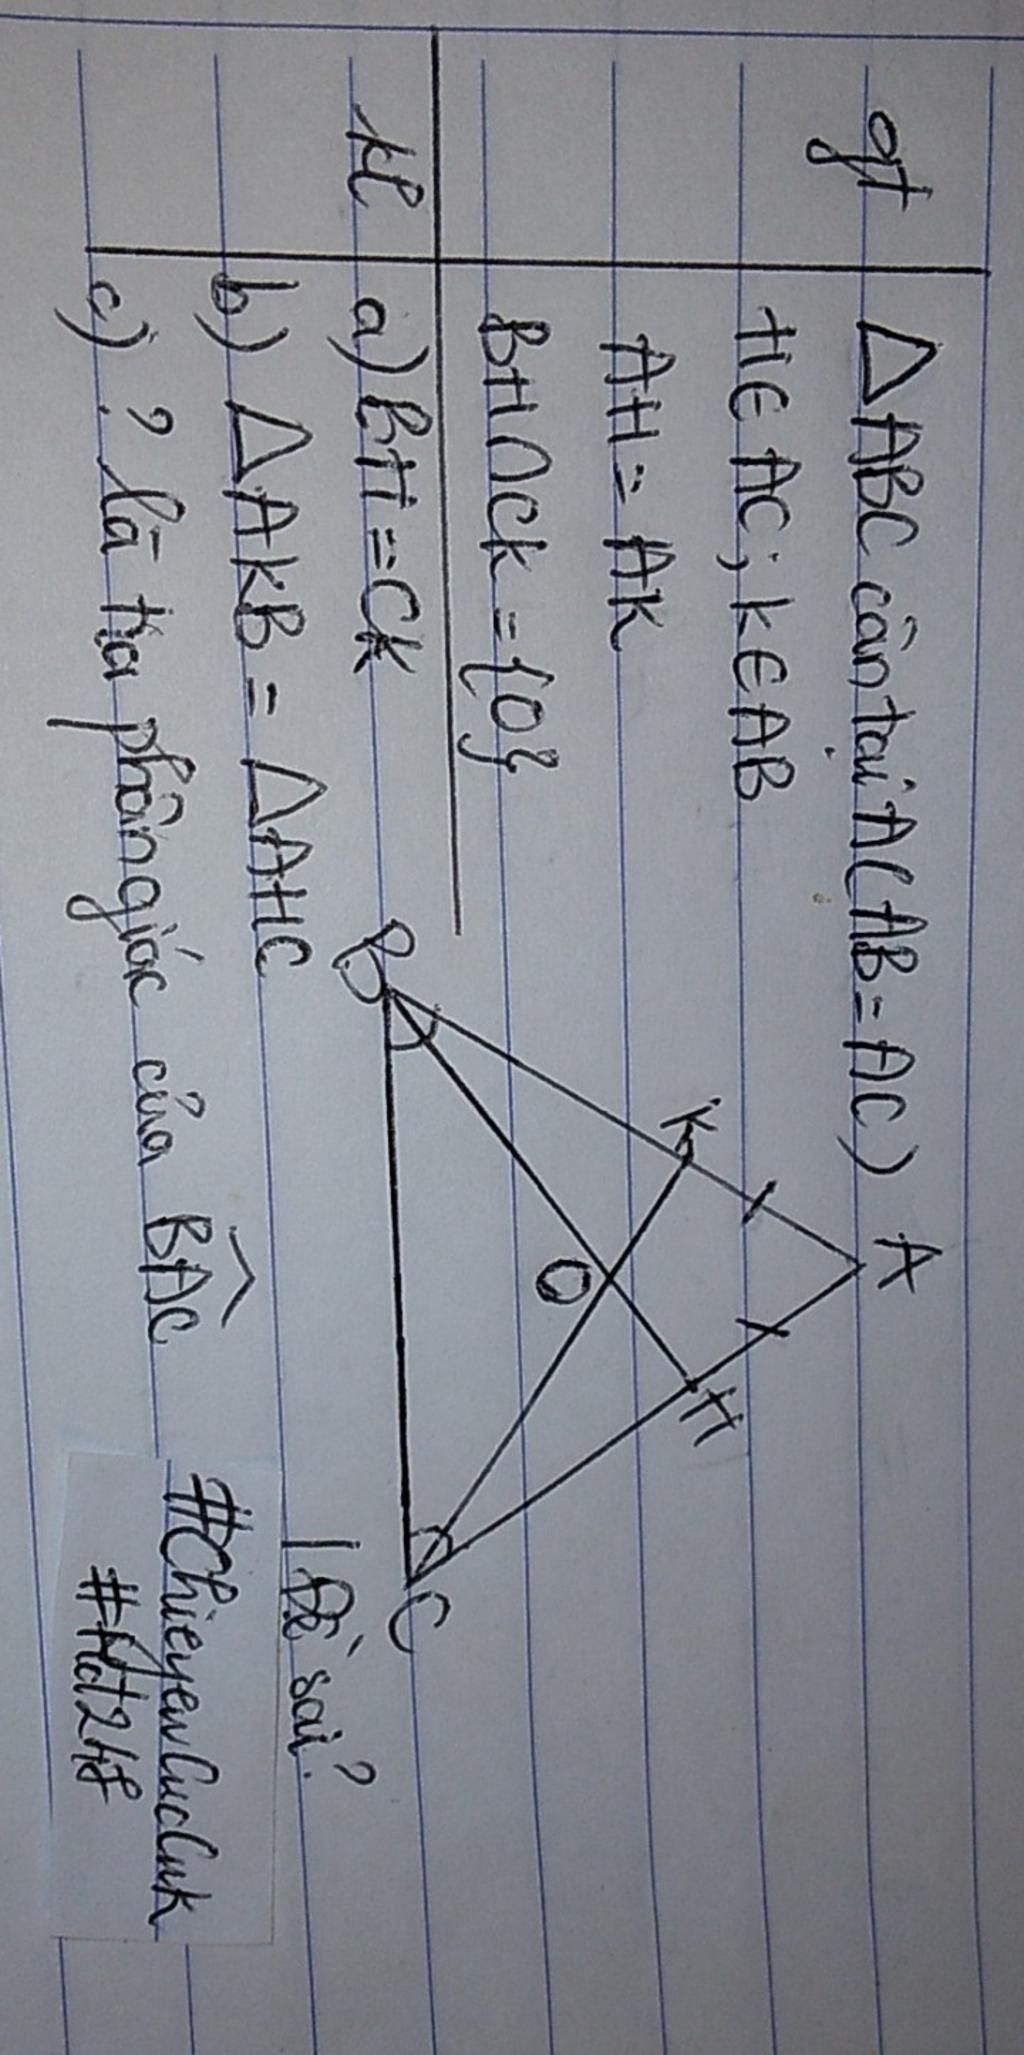 gt
ΔABC cân tại A (AB = AC)
H∈ AC; K∈ AB
AH = AK
BH∩CK = {O}
kl
a) BH = CK
b) ΔAKB = ΔAHC
c) ? là tia phân giác của BAC
A
K
H
O
B
C
| Đề sai?
#ChieyewCucCuk